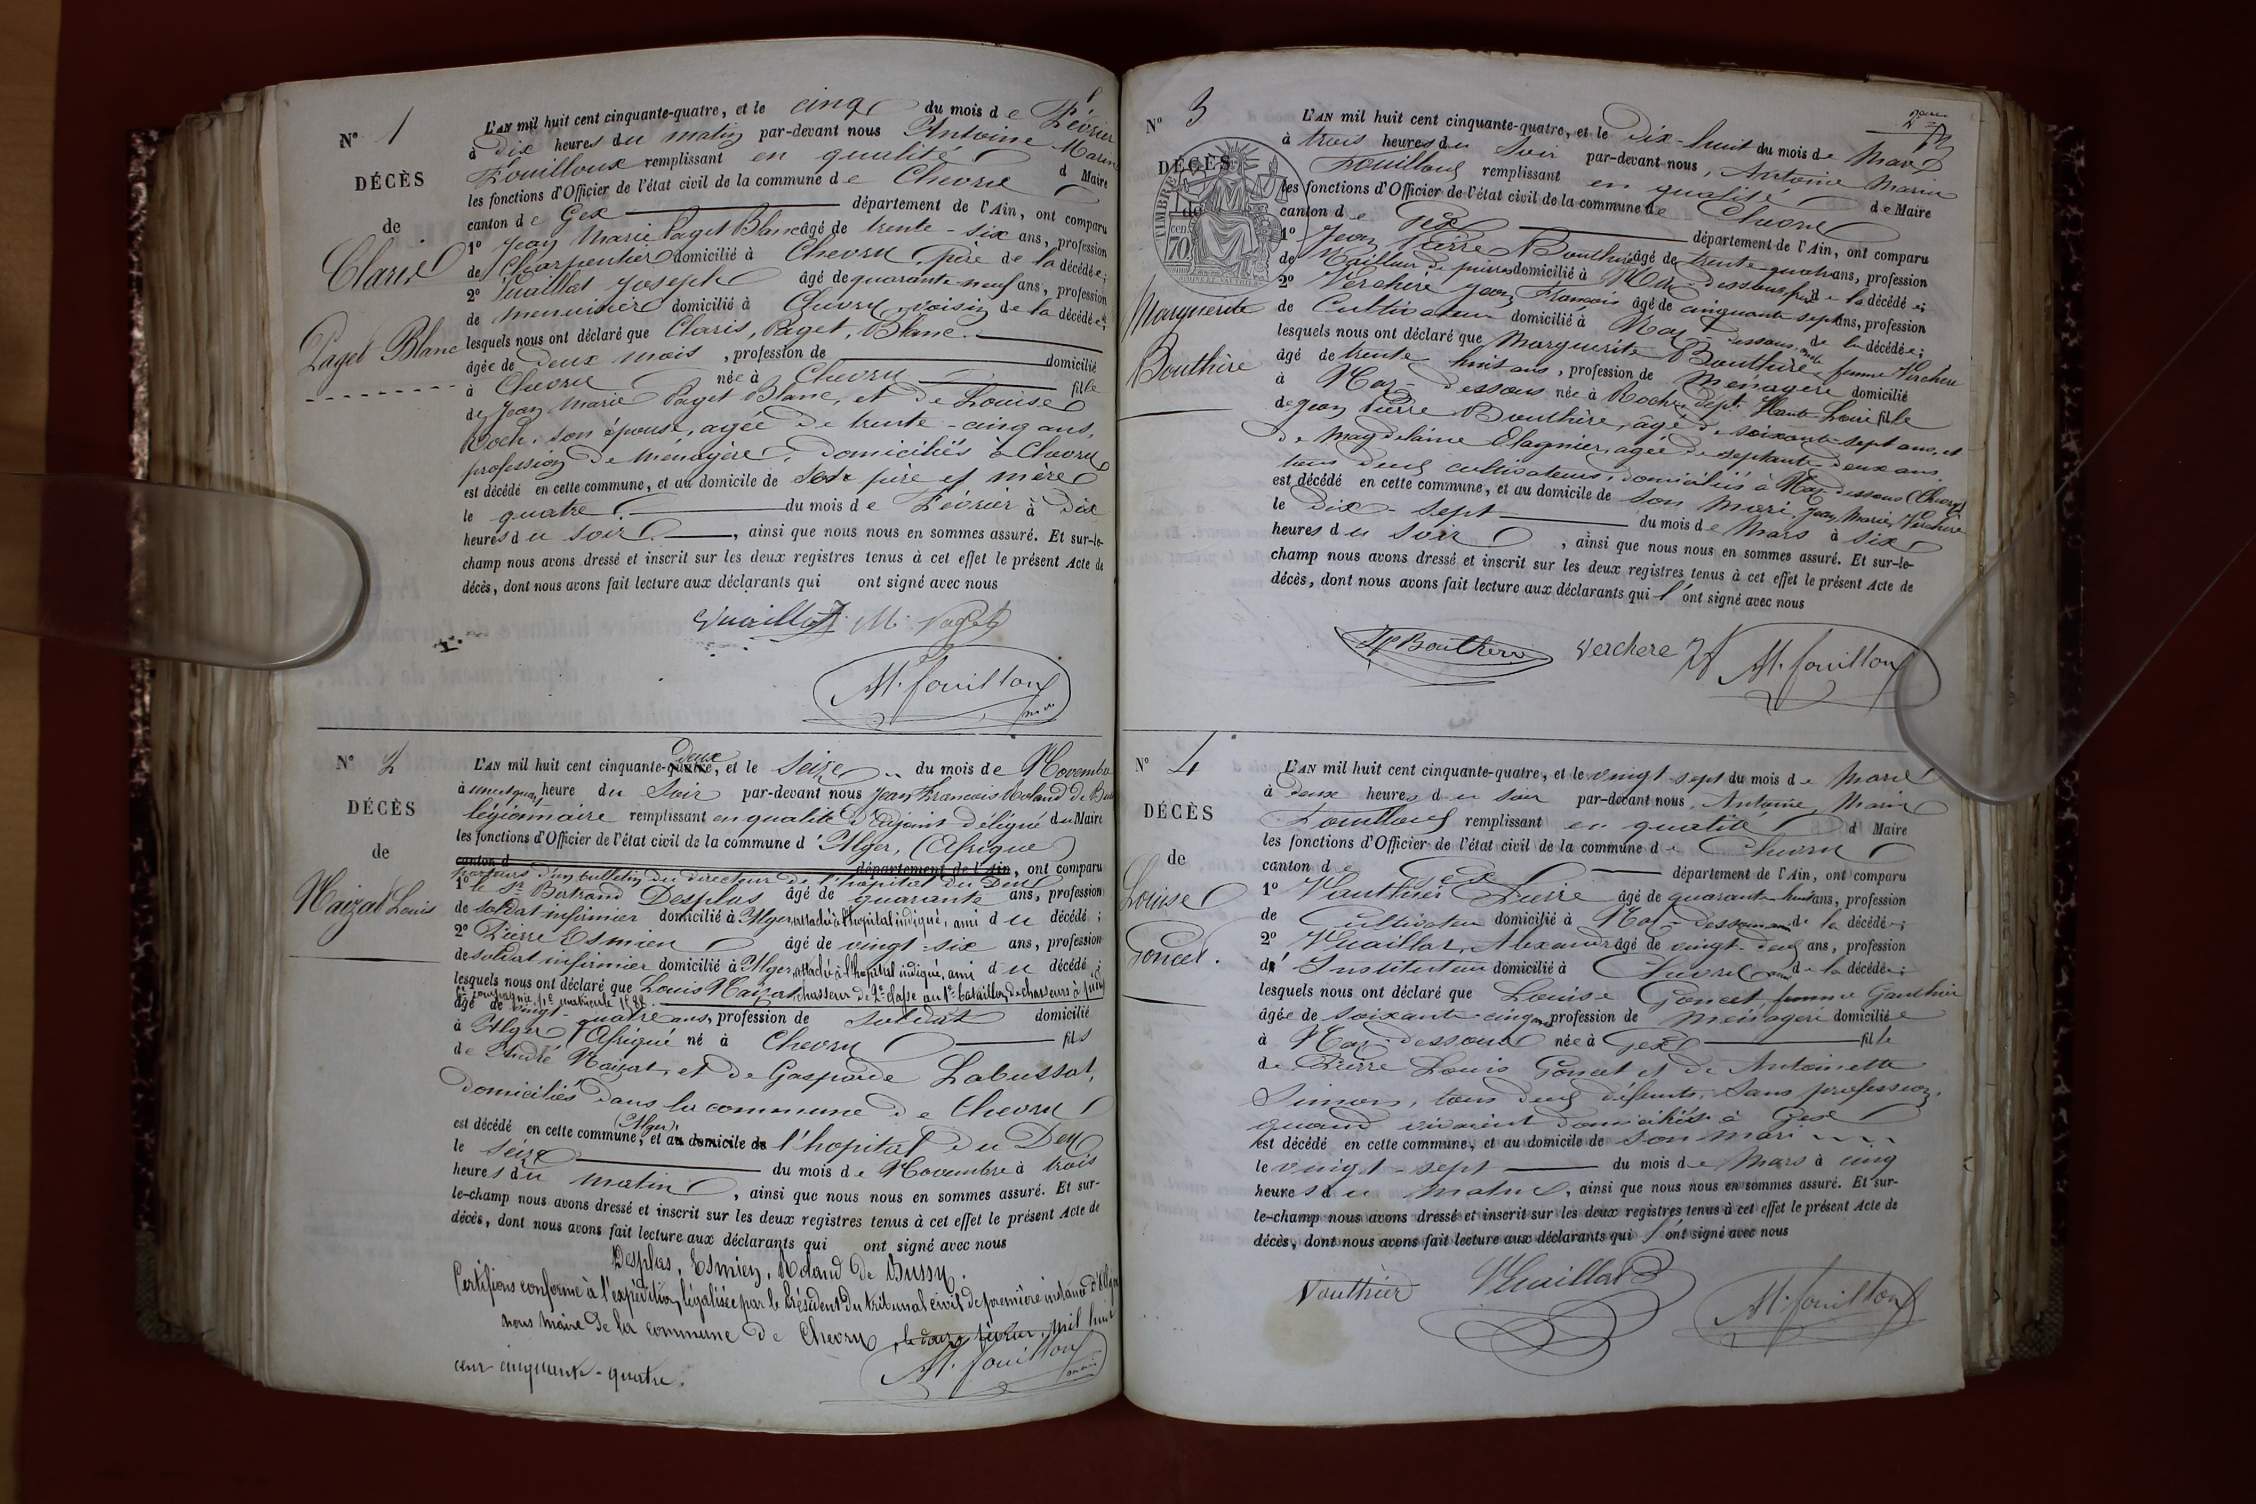 N° 1
DÉCÈS
de
Claris
Paget Blanc
L'AN mil huit cent cinquante-quatre, et le cinq du mois de Février
à dix heures du matin par-devant nous Antoine Marin
Fouilloux remplissant en qualité d Maire
les fonctions d'Officier de l'état civil de la commune de Chevry
canton de Gex département de l'Ain, ont comparu
1° Jean Marie Paget Blanc âgé de trente-six ans, profession
de Charpentier domicilié à Chevry, père de la décédée;
2° Vuaillat Joseph âgé de quarante neuf ans, profession
de menuisier domicilié à Chevry, voisin de la décédée;
lesquels nous ont déclaré que Claris, Paget, Blanc.
âgée de deux mois, profession de domicilié
à Chevry née à Chevry fille
de Jean Marie Paget Blanc, et de Louise
Roch, son épouse, agée de trente-cinq ans,
profession de ménagère, domiciliés à Chevry
est décédé en cette commune, et au domicile de ses père et mère
le quatre du mois de Février à dix
heures du soir, ainsi que nous nous en sommes assuré. Et sur-le-
champ nous avons dressé et inscrit sur les deux registres tenus à cet effet le présent Acte de
décès, dont nous avons fait lecture aux déclarants qui ont signé avec nous
Vuaillat J. M. Paget
M. fouilloux
N° 2
DÉCÈS
de
Naizat Louis
deux
L'AN mil huit cent cinquante-quatre, et le Seize du mois de Novembre
à heure du Soir par-devant nous Jean Francois Roland de
légionnaire remplissant en qualité d'adjoint délégué du Maire
les fonctions d'Officier de l'état civil de la commune d'Alger, (Afrique)
canton d département de l'Ain, ont comparu
porteurs d'un bulletin du directeur de l'hopital du Dey
1° le Sr Bertrand Desplas âgé de quarante ans, profession
de soldat infirmier domicilié à Alger, attaché à l'hopital indiqué, ami du décédé;
2° Pierre Esmien âgé de vingt-six ans, profession
de soldat infirmier domicilié à Alger, attaché à l'hopital indiqué, ami du décédé;
lesquels nous ont déclaré que Louis Naizat, chasseur de 2e classe au 1er bataillon de chasseurs à pied
compagnie, matricule
âgé de vingt-quatre ans, profession de soldat domicilié
à Alger (Afrique né à Chevry fils
de André Naizat, et de Gasparde Labussat,
domiciliés dans la commune de Chevry
(Alger)
est décédé en cette commune, et au domicile de l'hopital du Dey
le seize du mois de Novembre à trois
heures du matin, ainsi que nous nous en sommes assuré. Et sur-
le-champ nous avons dressé et inscrit sur les deux registres tenus à cet effet le présent Acte de
décès, dont nous avons fait lecture aux déclarants qui ont signé avec nous
Desplas, Esmien, Roland de Bussy.
Certifions conforme à l'expédition, légalisée par le Président du tribunal civil de première instance d'Alger
nous Maire de la commune de Chevry, le février, mil huit
cent cinquante-quatre.
M. fouilloux
N° 3
DÉCÈS
de
TIMBRE
70
Marguerite
Bouthère
L'AN mil huit cent cinquante-quatre, et le Dix-huit du mois de Mars
à trois heures du Soir par-devant nous, Antoine Marin
Fouilloux remplissant en qualité de Maire
les fonctions d'Officier de l'état civil de la commune de Chevry
canton de Gex département de l'Ain, ont comparu
1° Jean Pierre Bouthère âgé de trente-quatre ans, profession
de Tailleur de pierres domicilié à Nax-dessous, de la décédée;
2° Verchère Jean Francois âgé de cinquante sept ans, profession
de Cultivateur domicilié à Nax-dessous, de la décédée;
lesquels nous ont déclaré que Marguerite Bouthère femme Verchère
âgé de trente huit ans, profession de Ménagère domicilié
à Nax-dessous née à dépt. Haute-Loire fille
de Jean Pierre Bouthère, âgé de soixante-sept ans, et
de Magdelaine Olagnier, agée de septante-deux ans
tous deux cultivateurs, domiciliés à Nax-dessous (Chevry)
est décédé en cette commune, et au domicile de son mari, Jean Marie Verchère
le Dix-sept du mois de Mars à six
heures du soir, ainsi que nous nous en sommes assuré. Et sur-le-
champ nous avons dressé et inscrit sur les deux registres tenus à cet effet le présent Acte de
décès, dont nous avons fait lecture aux déclarants qui l'ont signé avec nous
JP Bouthere Verchere M. fouilloux
N° 4
DÉCÈS
de
Louise
Goncet.
L'AN mil huit cent cinquante-quatre, et le vingt-sept du mois de Mars
à deux heures du soir par-devant nous, Antoine, Marin
Fouilloux remplissant en qualité d Maire
les fonctions d'Officier de l'état civil de la commune de Chevry
canton de Gex département de l'Ain, ont comparu
1° Vauthier Pierre âgé de quarante-huit ans, profession
de Cultivateur domicilié à Nax-dessous ami de la décédée;
2° Vuaillat, Alexandre âgé de vingt-deux ans, profession
d'Instituteur domicilié à Chevry ami de la décédée;
lesquels nous ont déclaré que Louise Goncet, femme Gauthier
âgée de soixante-cinq ans profession de Ménagère domiciliée
à Nax-dessous née à Gex fille
de Pierre Louis Goncet et de Antoinette
Simon, tous deux défunts, sans profession,
quand vivaient domiciliés à Gex
est décédé en cette commune, et au domicile de son mari
le vingt-sept du mois de Mars à cinq
heures du matin, ainsi que nous nous en sommes assuré. Et sur-
le-champ nous avons dressé et inscrit sur les deux registres tenus à cet effet le présent Acte de
décès, dont nous avons fait lecture aux déclarants qui l'ont signé avec nous
Vauthier Vuaillat M. fouilloux